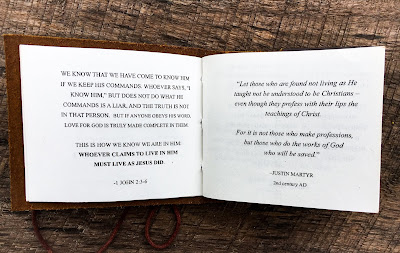 WE KNOW THAT WE HAVE COME TO KNOW HIM
IF WE KEEP HIS COMMANDS. WHOEVER SAYS, "I
KNOW HIM," BUT DOES NOT DO WHAT HE
COMMANDS IS A LIAR, AND THE TRUTH IS NOT
IN THAT PERSON. BUT IF ANYONE OBEYS HIS WORD,
LOVE FOR GOD IS TRULY MADE COMPLETE IN THEM.
THIS IS HOW WE KNOW WE ARE IN HIM:
WHOEVER CLAIMS TO LIVE IN HIM
MUST LIVE AS JESUS DID.
-1 JOHN 2:3-6
"Let those who are found not living as He
taught not be understood to be Christians –
even though they profess with their lips the
teachings of Christ.
For it is not those who make professions,
but those who do the works of God
who will be saved."
-JUSTIN MARTYR
2nd century AD